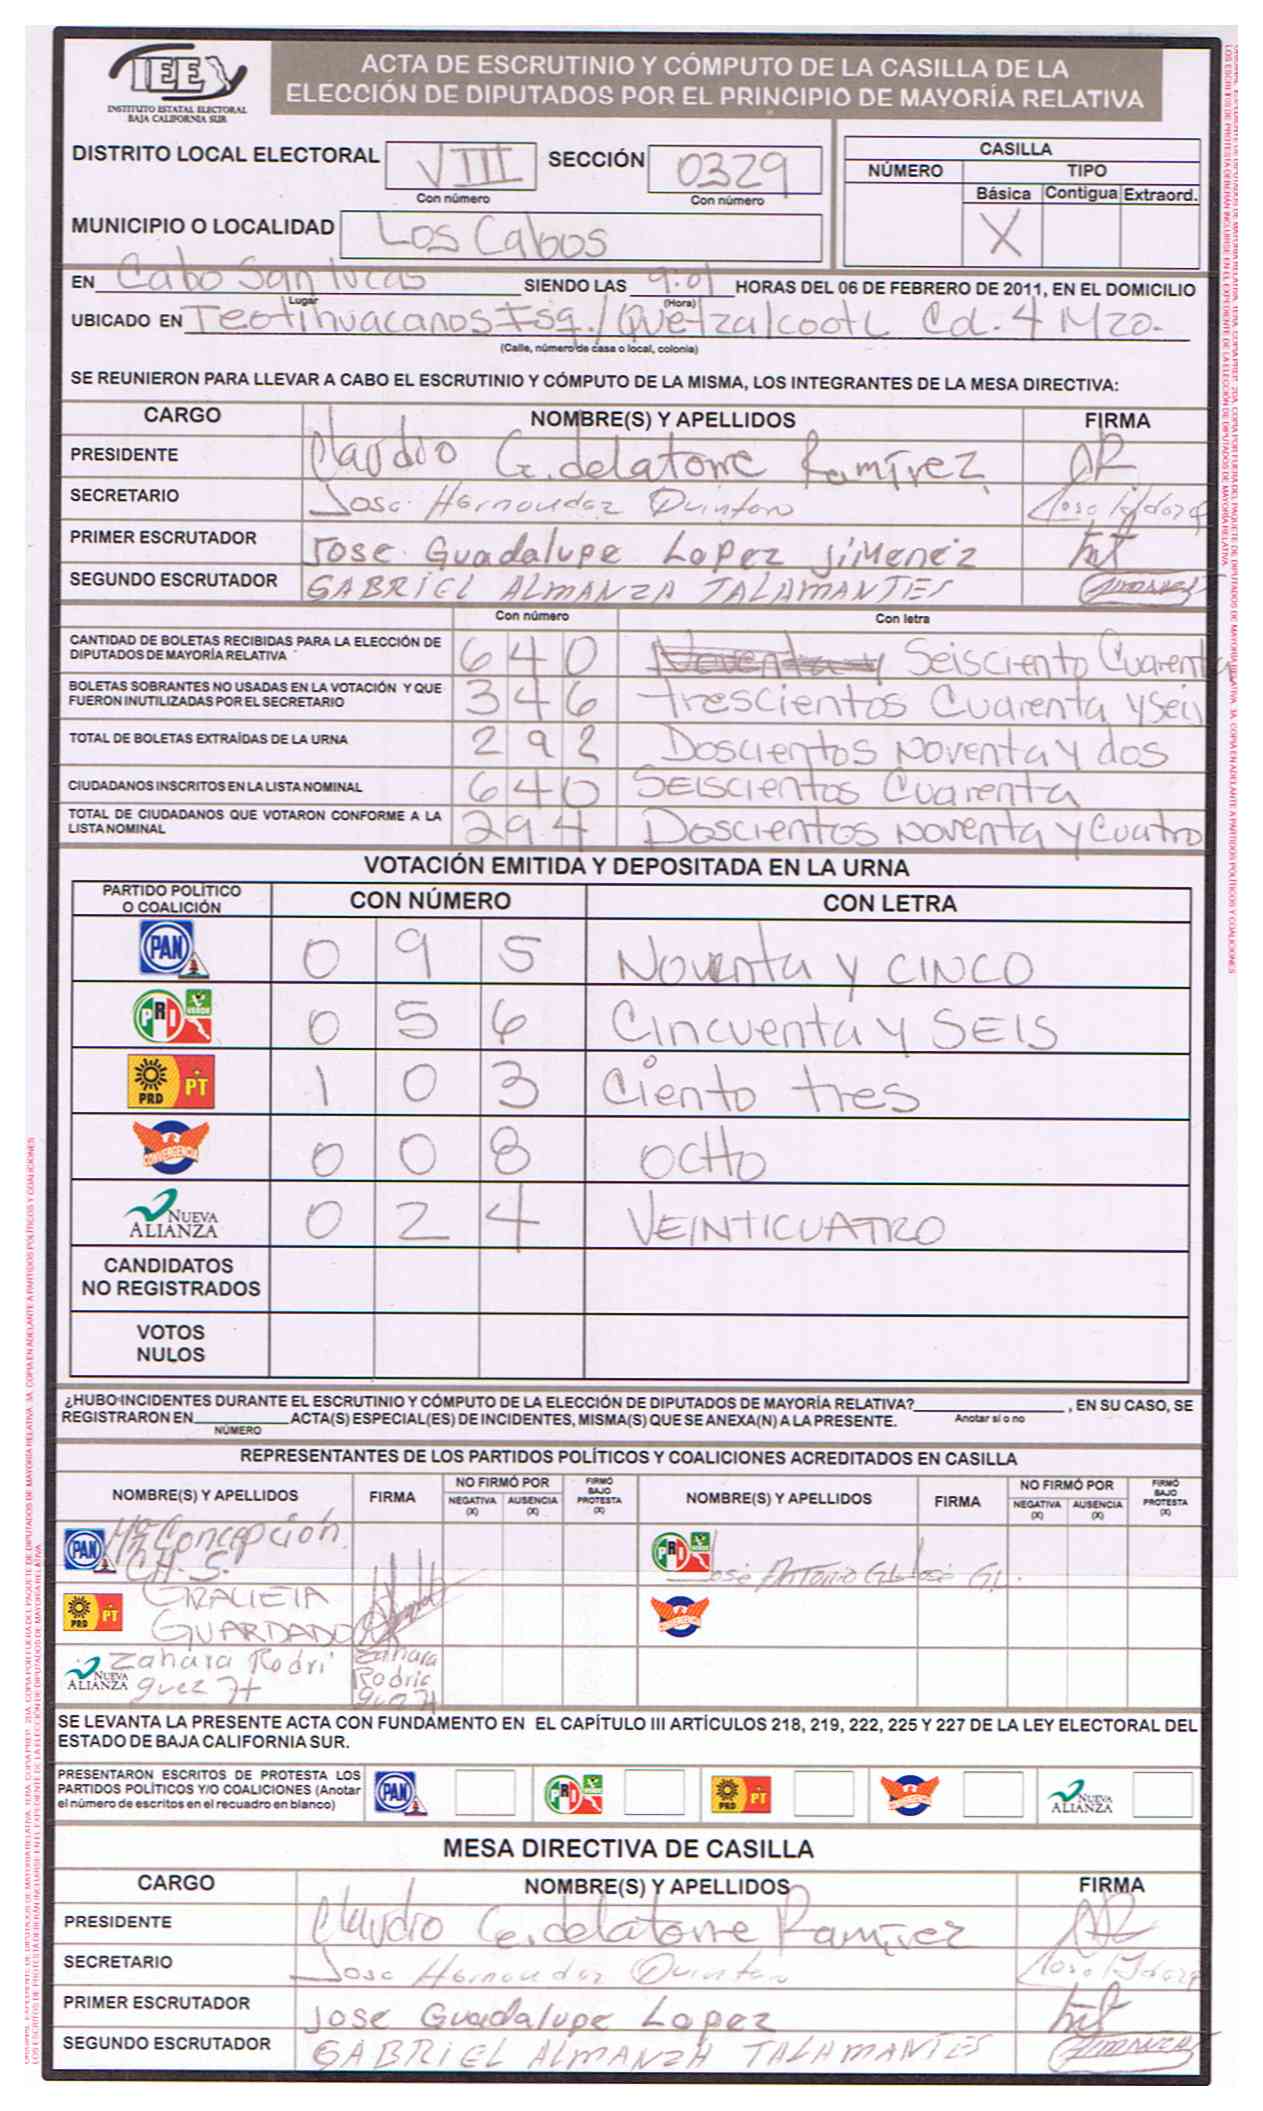 IEE
INSTITUTO ESTATAL ELECTORAL
BAJA CALIFORNIA SUR
ACTA DE ESCRUTINIO Y CÓMPUTO DE LA CASILLA DE LA
ELECCIÓN DE DIPUTADOS POR EL PRINCIPIO DE MAYORÍA RELATIVA
DISTRITO LOCAL ELECTORAL VIII SECCIÓN 0329
Con número Con número
CASILLA
NÚMERO TIPO
Básica Contigua Extraord.
X
MUNICIPIO O LOCALIDAD Los Cabos
EN Cabo San lucas SIENDO LAS 9:01 HORAS DEL 06 DE FEBRERO DE 2011, EN EL DOMICILIO
Lugar (Hora)
UBICADO EN Teotihuacanos Esq./Quetzalcootl Cd. 4 Mzo.
(Calle, número de casa o local, colonia)
SE REUNIERON PARA LLEVAR A CABO EL ESCRUTINIO Y CÓMPUTO DE LA MISMA, LOS INTEGRANTES DE LA MESA DIRECTIVA:
CARGO NOMBRE(S) Y APELLIDOS FIRMA
PRESIDENTE Claudio G. delatorre Ramírez
SECRETARIO Jose Hernandez Quintero
PRIMER ESCRUTADOR Jose Guadalupe Lopez Jimenez
SEGUNDO ESCRUTADOR GABRIEL ALMANZA TALAMANTES
Con número Con letra
CANTIDAD DE BOLETAS RECIBIDAS PARA LA ELECCIÓN DE
DIPUTADOS DE MAYORÍA RELATIVA 640 Noventa y Seisciento Cuarenta
BOLETAS SOBRANTES NO USADAS EN LA VOTACIÓN Y QUE
FUERON INUTILIZADAS POR EL SECRETARIO 346 trescientos Cuarenta y Seis
TOTAL DE BOLETAS EXTRAÍDAS DE LA URNA 292 Doscientos Noventa y dos
CIUDADANOS INSCRITOS EN LA LISTA NOMINAL 640 SEISCIENTOS Cuarenta
TOTAL DE CIUDADANOS QUE VOTARON CONFORME A LA
LISTA NOMINAL 294 Doscientos Noventa y Cuatro
VOTACIÓN EMITIDA Y DEPOSITADA EN LA URNA
PARTIDO POLÍTICO
O COALICIÓN CON NÚMERO CON LETRA
PAN 0 9 5 Noventa y CINCO
PRI VERDE 0 5 6 Cincuenta y SEIS
PRD PT 1 0 3 Ciento tres
CONVERGENCIA 0 0 8 OCHO
NUEVA ALIANZA 0 2 4 VEINTICUATRO
CANDIDATOS
NO REGISTRADOS
VOTOS
NULOS
¿HUBO INCIDENTES DURANTE EL ESCRUTINIO Y CÓMPUTO DE LA ELECCIÓN DE DIPUTADOS DE MAYORÍA RELATIVA? , EN SU CASO, SE
Anotar si o no
REGISTRARON EN ACTA(S) ESPECIAL(ES) DE INCIDENTES, MISMA(S) QUE SE ANEXA(N) A LA PRESENTE.
NÚMERO
REPRESENTANTES DE LOS PARTIDOS POLÍTICOS Y COALICIONES ACREDITADOS EN CASILLA
NOMBRE(S) Y APELLIDOS FIRMA NO FIRMÓ POR NEGATIVA (X) AUSENCIA (X) FIRMÓ BAJO PROTESTA (X) NOMBRE(S) Y APELLIDOS FIRMA NO FIRMÓ POR NEGATIVA (X) AUSENCIA (X) FIRMÓ BAJO PROTESTA (X)
PAN Ma Concepción
CH. S.
PRI José Antonio
PRD PT GRACIELA
GUARDADO
CONVERGENCIA
NUEVA ALIANZA Zahara Rodri
guez H
Zahara
Rodrig
guez H
SE LEVANTA LA PRESENTE ACTA CON FUNDAMENTO EN EL CAPÍTULO III ARTÍCULOS 218, 219, 222, 225 Y 227 DE LA LEY ELECTORAL DEL
ESTADO DE BAJA CALIFORNIA SUR.
PRESENTARON ESCRITOS DE PROTESTA LOS
PARTIDOS POLÍTICOS Y/O COALICIONES (Anotar
el número de escritos en el recuadro en blanco)
PAN PRI PRD PT CONVERGENCIA NUEVA ALIANZA
MESA DIRECTIVA DE CASILLA
CARGO NOMBRE(S) Y APELLIDOS FIRMA
PRESIDENTE Claudio G. delatorre Ramírez
SECRETARIO Jose Hernandez
PRIMER ESCRUTADOR Jose Guadalupe Lopez
SEGUNDO ESCRUTADOR GABRIEL ALMANZA TALAMANTES